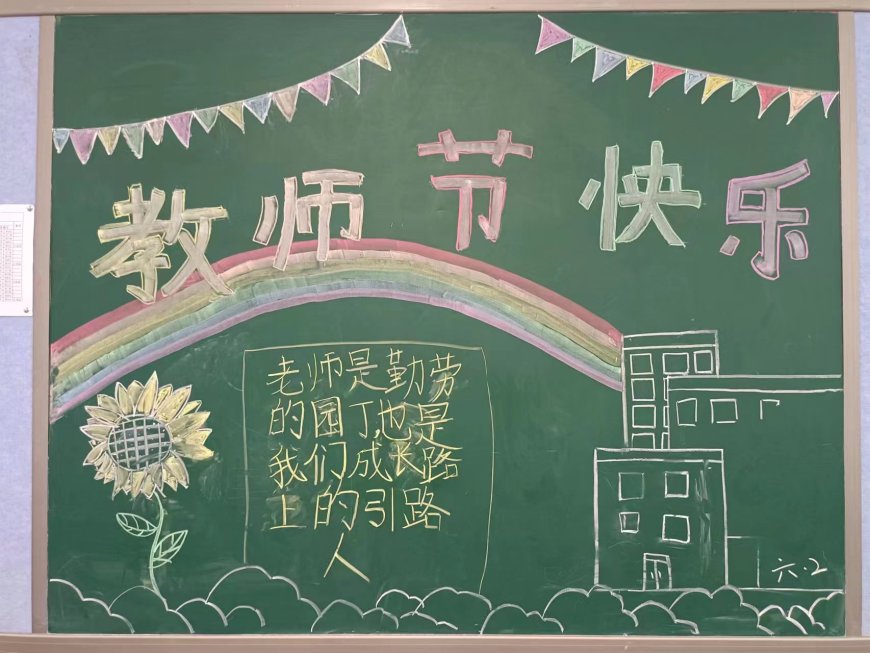 教师节快乐
老师是勤劳
的园丁,也是
我们成长路
上的引路
人
六.2